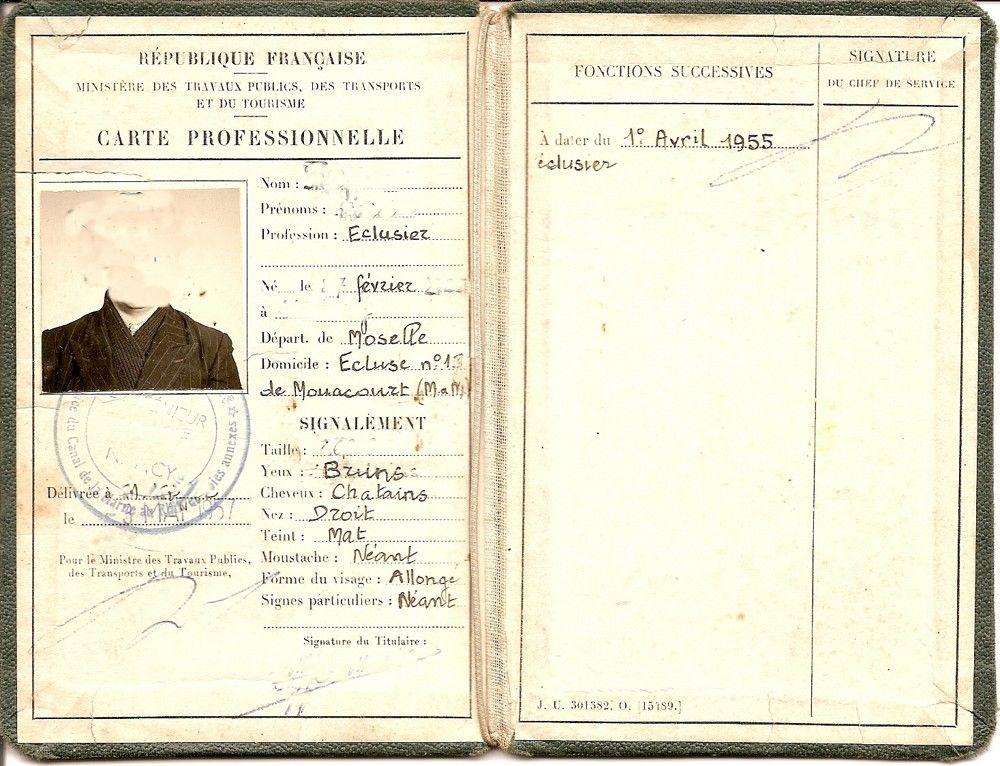 RÉPUBLIQUE FRANÇAISE
MINISTÈRE DES TRAVAUX PUBLICS, DES TRANSPORTS
ET DU TOURISME
CARTE PROFESSIONNELLE
Nom :
Prénoms :
Profession : Eclusier
Né le 7 février
à
Départ. de Moselle
Domicile : Ecluse n°13
de Mouacourt (M.&M)
SIGNALEMENT
Taille :
Yeux : Bruns
Cheveux : Chatains
Nez : Droit
Teint : Mat
Moustache : Néant
Forme du visage : Allongé
Signes particuliers : Néant
Signature du Titulaire :
NANCY
du Canal de la Marne au Rhin et annexes
Délivrée à
le MAI 1957
Pour le Ministre des Travaux Publics,
des Transports et du Tourisme,
FONCTIONS SUCCESSIVES
SIGNATURE
DU CHEF DE SERVICE
À dater du 1° Avril 1955
éclusier
J. U. 301382. O. [15489.]